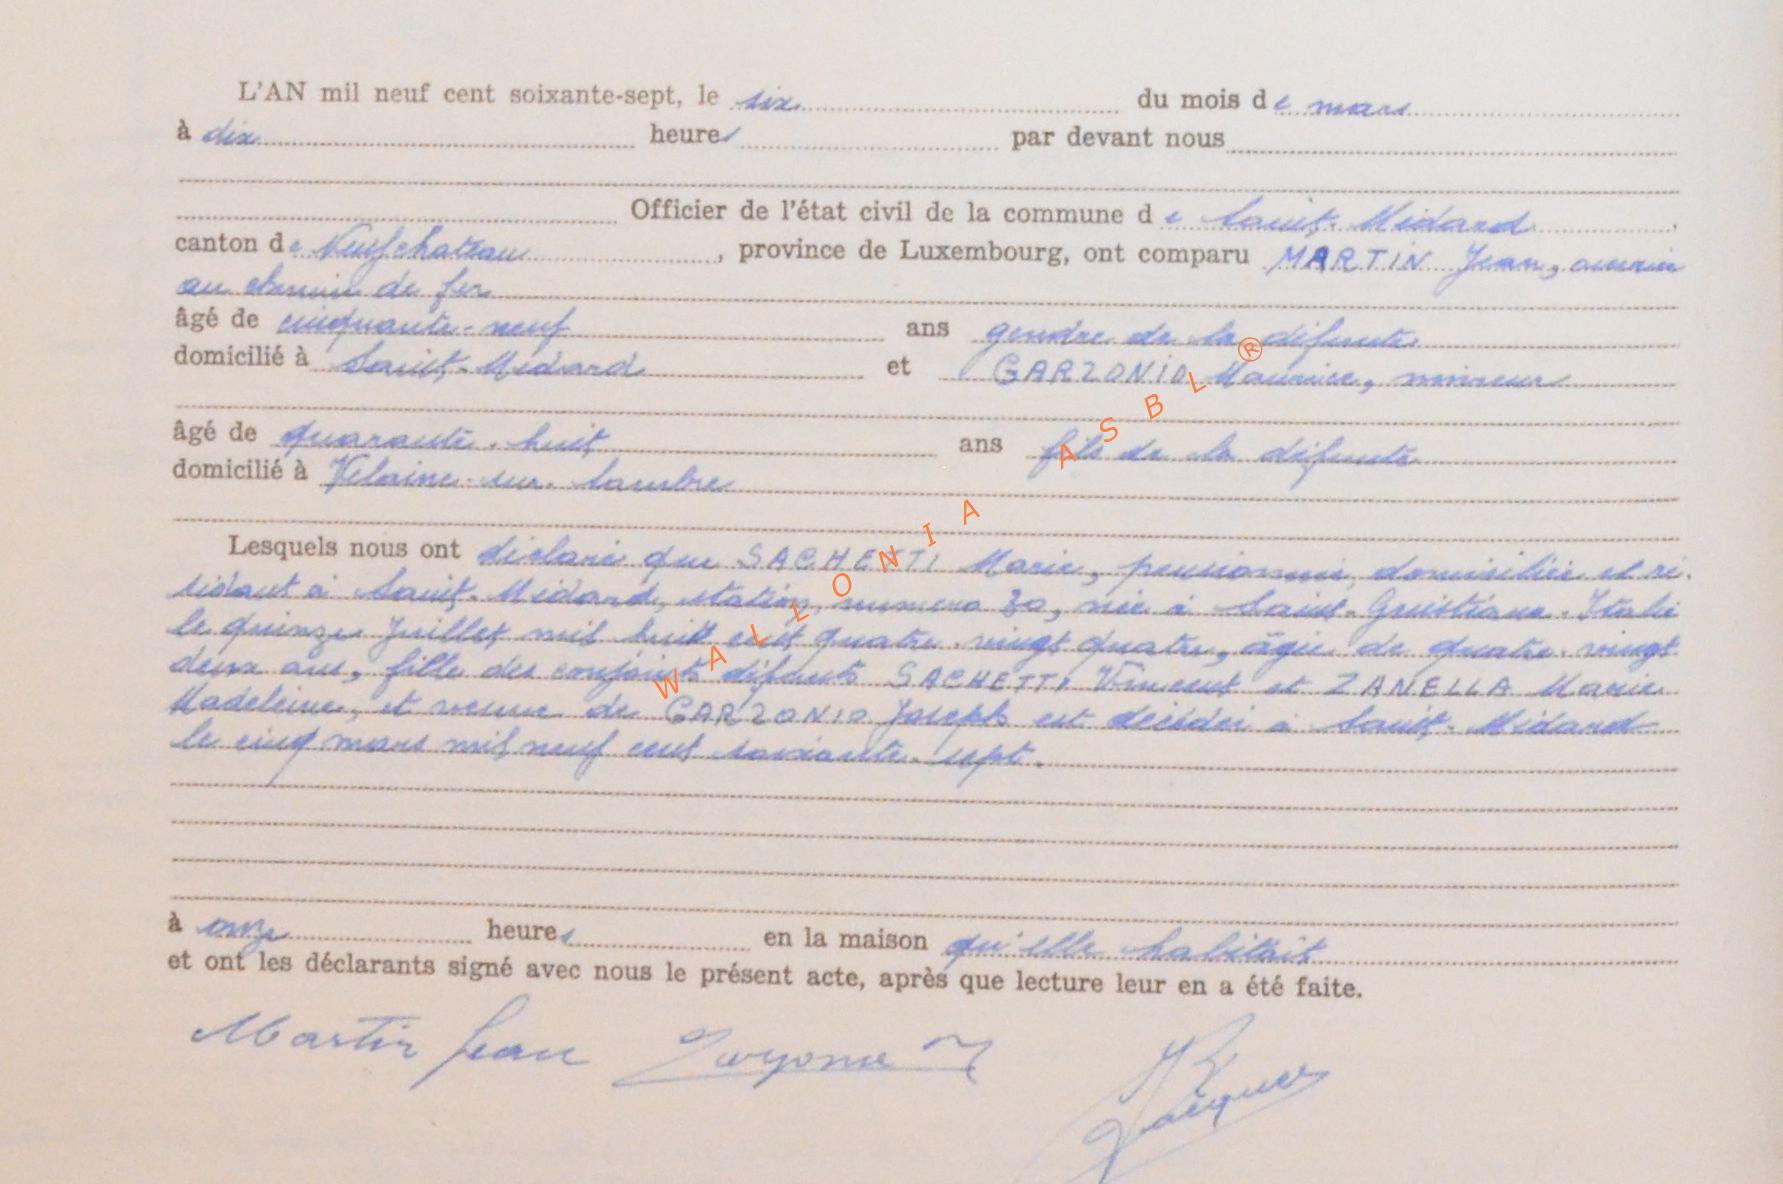 L'AN mil neuf cent soixante-sept, le six du mois de mars
à dix heures par devant nous
Officier de l'état civil de la commune de Saint-Médard,
canton de Neufchateau, province de Luxembourg, ont comparu MARTIN Jean, ouvrier
au chemin de fer
âgé de cinquante-neuf ans gendre de la défunte
domicilié à Saint-Médard et GARZONIO Maurice, mineur
âgé de quarante-huit ans fils de la défunte
domicilié à Velaine-sur-Sambre
Lesquels nous ont déclaré que SACHETTI Marie, pensionnée, domiciliée et ré-
sidant à Saint-Médard, station, numéro 30, née à Saint-Guistiana-Italie
le quinze Juillet mil huit cent quatre-vingt quatre, âgée de quatre-vingt
deux ans, fille des conjoints défunts SACHETTI Vincent et ZANELLA Marie
Madeleine, et veuve de GARZONIO Joseph est décédée à Saint-Médard
le cinq mars mil neuf cent soixante-sept.
à onze heures en la maison qu'elle habitait
et ont les déclarants signé avec nous le présent acte, après que lecture leur en a été faite.
Martin Jean
Jacques
WALLONIA ASBL®